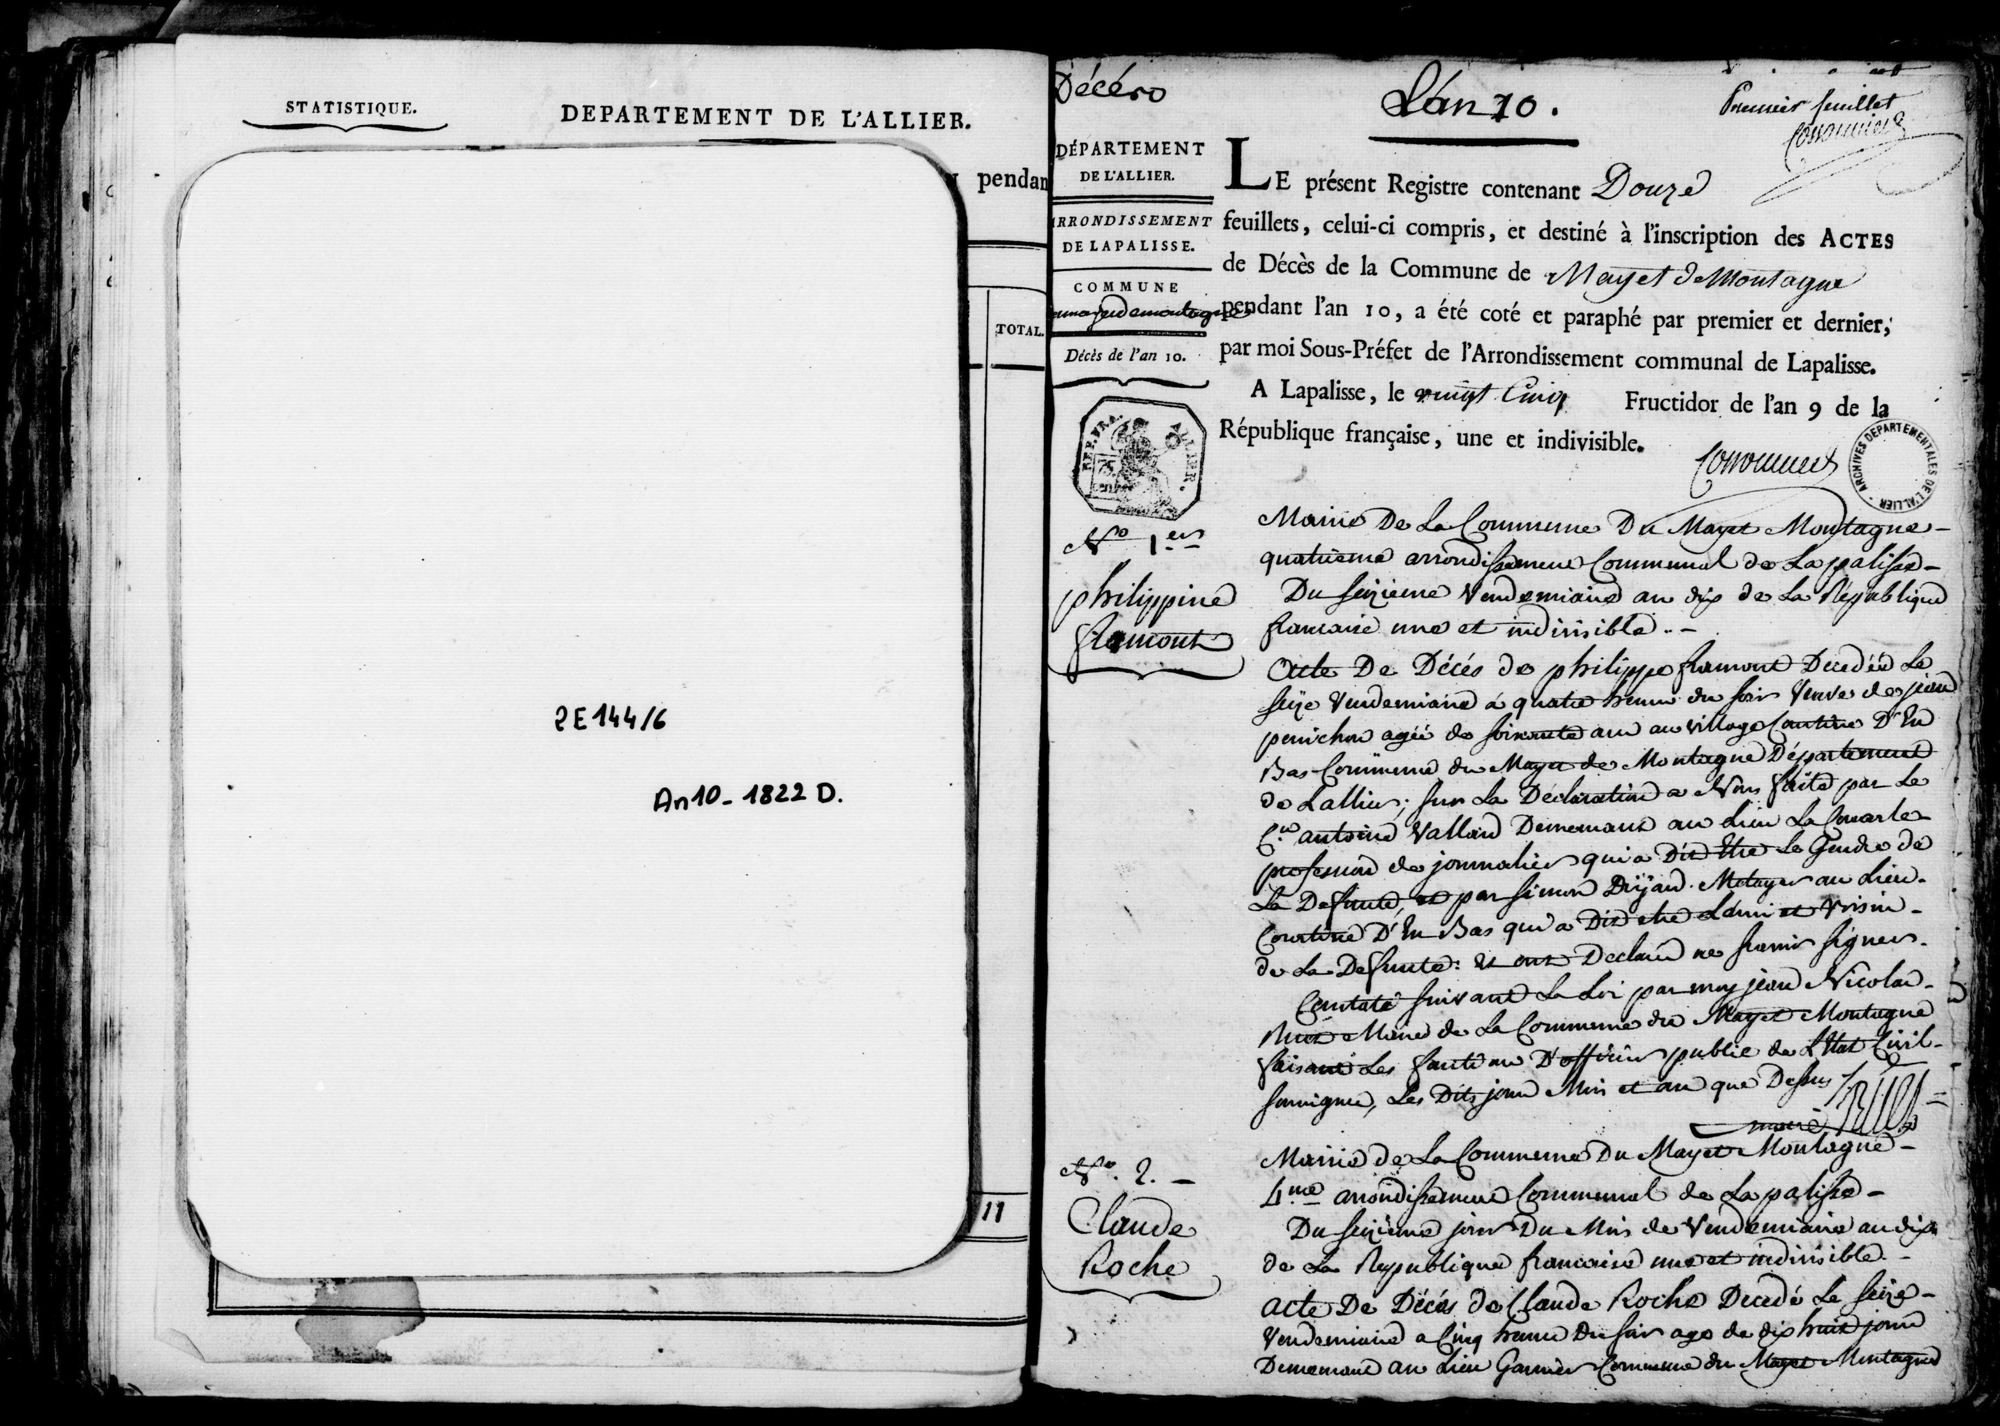 STATISTIQUE.
DEPARTEMENT DE L'ALLIER.
pendan
TOTAL.
11
2E144/6
An10-1822 D.
Décéro
L'an 10.
Premier feuillet
DÉPARTEMENT
DE L'ALLIER.
ARRONDISSEMENT
DE LAPALISSE.
COMMUNE
Décès de l'an 10.
LE présent Registre contenant Douze
feuillets, celui-ci compris, et destiné à l'inscription des ACTES
de Décès de la Commune de Mayet de Montagne
pendant l'an 10, a été coté et paraphé par premier et dernier,
par moi Sous-Préfet de l'Arrondissement communal de Lapalisse.
A Lapalisse, le vingt Cinq Fructidor de l'an 9 de la
République française, une et indivisible.
REP. FRA.
75
cent
ARCHIVES DEPARTEMENTALES DE L'ALLIER
No 1er
philippine
framont
Mairie De La Commune Du Mayet Montagne-
quatrieme arrondissement Communal de Lapalisse-
Du seizieme Vendemiaire an dix de La République
francaise une et indivisible..-
Acte De Décés de philippe framont Decedéé Le
seize Vendemiaire a quatre heures du soir Veuve de jean
penichon agéé de soixante ans au village Courtine D'En
Bas Commune du Mayet de Montagne Département
de Lallier; sur La Déclaration a Nous faite par Le
C.en antoine Vallard Demeurant au Lieu La
profession de journalier qui a Dit Etre Le Gendre de
La Defunte, et par Simon Metayer au Lieu-
Courtine D'En Bas qui a Dit etre L'ami et Voisin-
de La Defunte: et ont Declaré ne savoir signer.
Constaté suivant La Loi par moy jean Nicolas-
Maire de La Commune du Mayet Montagne
faisant Les fonctions D'officier public de L'Etat Civil-
soussigné, Les Dits jour Mois et an que Dessus
maire
No. 2.-
Claude
Roche
Mairie de La Commune Du Mayet Montagne-
4me arrondissement Communal de Lapalisse-
Du seizieme jour Du Mois de Vendemiaire an dix
de La Republique francaise une et indivisible.-
acte De Décés de Claude Roche Decedé Le seize-
Vendemiaire a Cinq heures Du soir age de dix huit jours
Demeurant au Lieu Garnier Commune du Mayet Montagne